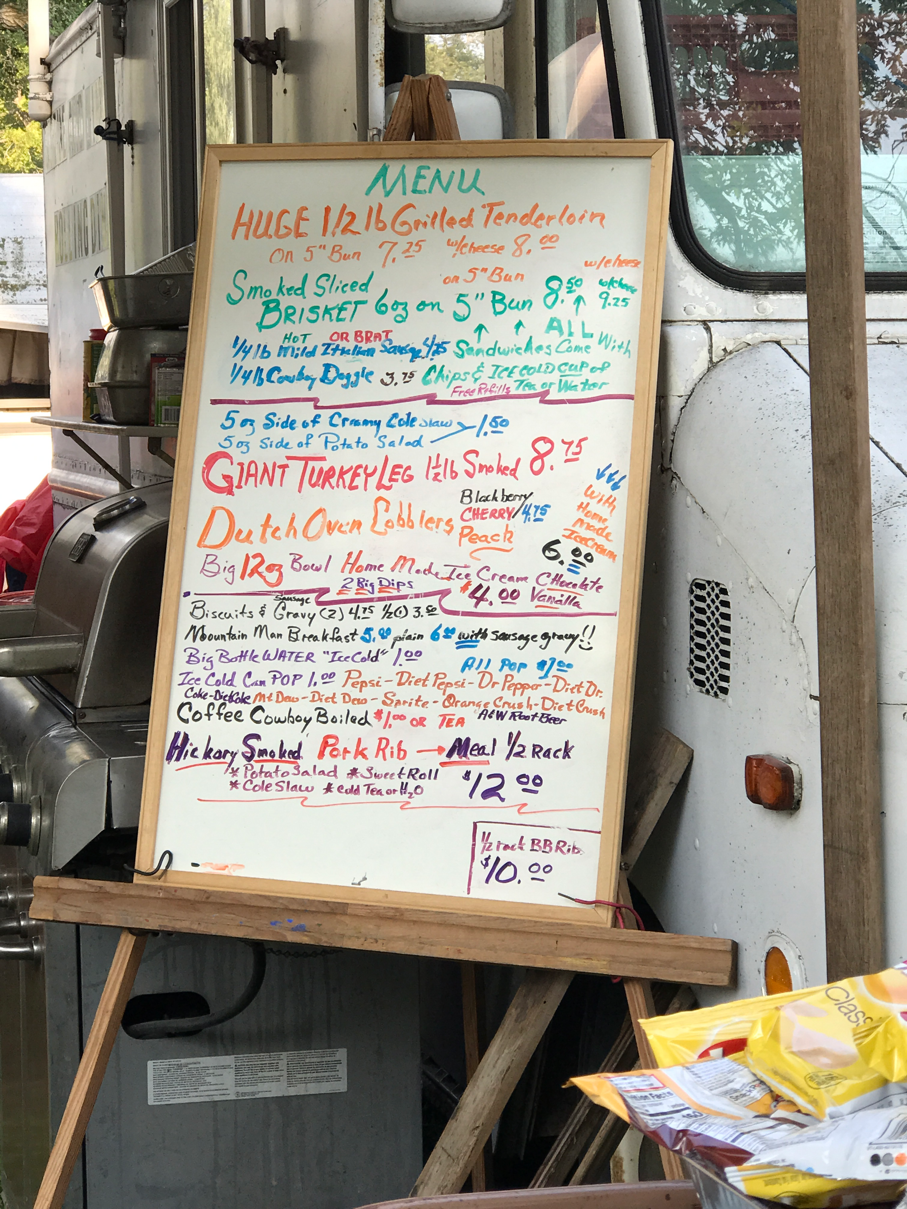 MENU
HUGE 1/2 lb Grilled Tenderloin
On 5" Bun 7.25 w/cheese 8.00
on 5" Bun
w/cheese
Smoked Sliced
BRISKET 6oz on 5" Bun 8.50 w/cheese 9.25
HOT OR BRAT
1/4 lb Mild Italian Sausage 4.75
1/4 lb Cowboy Doggie 3.75
ALL
Sandwiches Come With
Chips & ICE COLD CUP of
Free Refills Tea or Water
5 oz Side of Creamy Cole Slaw
5 oz Side of Potato Salad 1.50
GIANT TURKEY LEG 1 1/2 lb Smoked 8.75
Dutch Oven Cobblers
Blackberry/
CHERRY/ 4.75
Peach
With
Home
made
Ice Cream
6.00
Big 12oz Bowl Home Made Ice Cream CHocolate
2 Big Dips $4.00 Vanilla
Sausage
Biscuits & Gravy (2) 4.75 1/2 (1) 3.50
Mountain Man Breakfast 5.00 plain 6.00 with sausage gravy!!
Big Bottle WATER "Ice Cold" 1.00
All Pop $1.00
Ice Cold Can POP 1.00 Pepsi - Diet Pepsi - Dr Pepper - Diet Dr.
Coke - Diet Coke Mt Dew - Diet Dew - Sprite - Orange Crush - Diet Crush
Coffee Cowboy Boiled $1.00 OR TEA A&W Root Beer
Hickory Smoked Pork Rib → Meal 1/2 Rack
* Potato Salad * Sweet Roll
* Cole Slaw * cold Tea or H2O
$12.00
1/2 rack BB Rib
$10.00
Classic